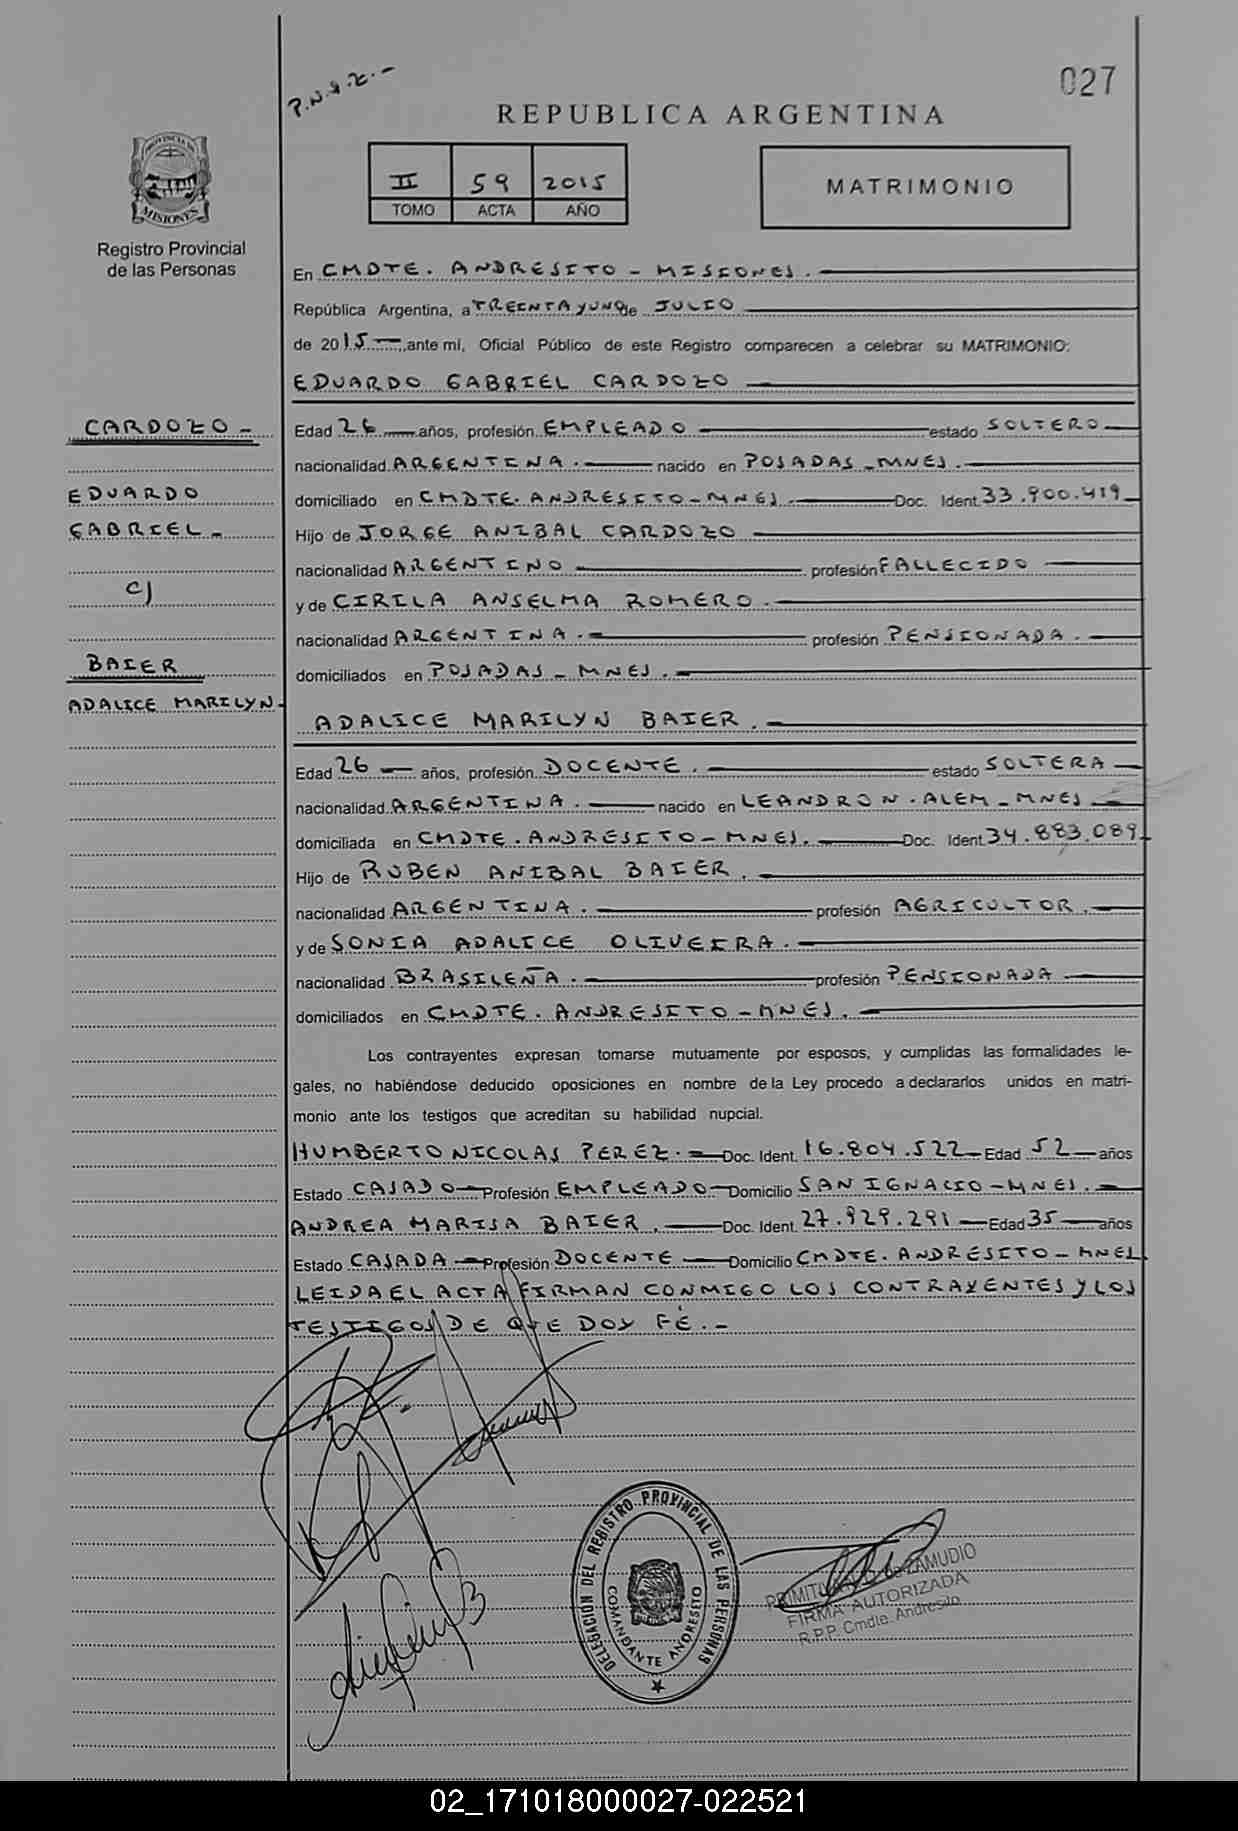 P.N.&.Z.-
027
REPUBLICA ARGENTINA
PROVINCIA DE
MISIONES
Registro Provincial
de las Personas
II 59 2015
TOMO ACTA AÑO
MATRIMONIO
En CMDTE. ANDRESITO - MISIONES.
República Argentina, a TREINTA Y UNO de JULIO
de 2015 ante mí, Oficial Público de este Registro comparecen a celebrar su MATRIMONIO:
EDUARDO GABRIEL CARDOZO
CARDOZO-
EDUARDO
GABRIEL-
C/
BAIER
ADALICE MARILYN-
Edad 26 años, profesión EMPLEADO estado SOLTERO
nacionalidad ARGENTINA. nacido en POSADAS-MNES.
domiciliado en CMDTE. ANDRESITO-MNES. Doc. Ident. 33.900.419
Hijo de JORGE ANIBAL CARDOZO
nacionalidad ARGENTINO profesión FALLECIDO
y de CIRILA ANSELMA ROMERO.
nacionalidad ARGENTINA. profesión PENSIONADA.
domiciliados en POSADAS-MNES.
ADALICE MARILYN BAIER.
Edad 26 años, profesión DOCENTE. estado SOLTERA
nacionalidad ARGENTINA. nacido en LEANDRO N. ALEM-MNES
domiciliada en CMDTE. ANDRESITO-MNES. Doc. Ident. 34.883.089
Hijo de RUBEN ANIBAL BAIER.
nacionalidad ARGENTINA. profesión AGRICULTOR.
y de SONIA ADALICE OLIVEIRA.
nacionalidad BRASILEÑA. profesión PENSIONADA
domiciliados en CMDTE. ANDRESITO-MNES.
Los contrayentes expresan tomarse mutuamente por esposos, y cumplidas las formalidades le-
gales, no habiéndose deducido oposiciones en nombre de la Ley procedo a declararlos unidos en matri-
monio ante los testigos que acreditan su habilidad nupcial.
HUMBERTO NICOLAS PEREZ. Doc. Ident. 16.804.522 Edad 52 años
Estado CASADO Profesión EMPLEADO Domicilio SAN IGNACIO-MNES.
ANDREA MARISA BAIER. Doc. Ident. 27.929.291 Edad 35 años
Estado CASADA Profesión DOCENTE Domicilio CMDTE. ANDRESITO-MNES
LEIDA EL ACTA FIRMAN CONMIGO LOS CONTRAYENTES Y LOS
TESTIGOS DE QUE DOY FÉ.-
DELEGACIÓN DEL REGISTRO PROVINCIAL DE LAS PERSONAS
COMANDANTE ANDRESITO
ZAMUDIO
FIRMA AUTORIZADA
R.P.P. Cmdte. Andresito
02_171018000027-022521